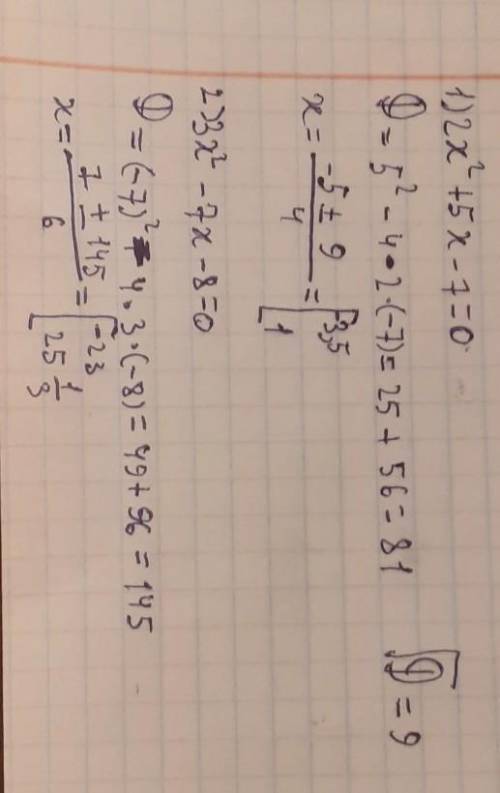 1) 2x² + 5x - 7 = 0.
D = 5² - 4 · 2 · (-7) = 25 + 56 = 81 √D = 9
x = (-5 ± 9)/4 = [-3,5
1
2) 3x² - 7x - 8 = 0
D = (-7)² - 4 · 3 · (-8) = 49 + 96 = 145
x = (7 ± 145)/6 = [-23
25 1/3